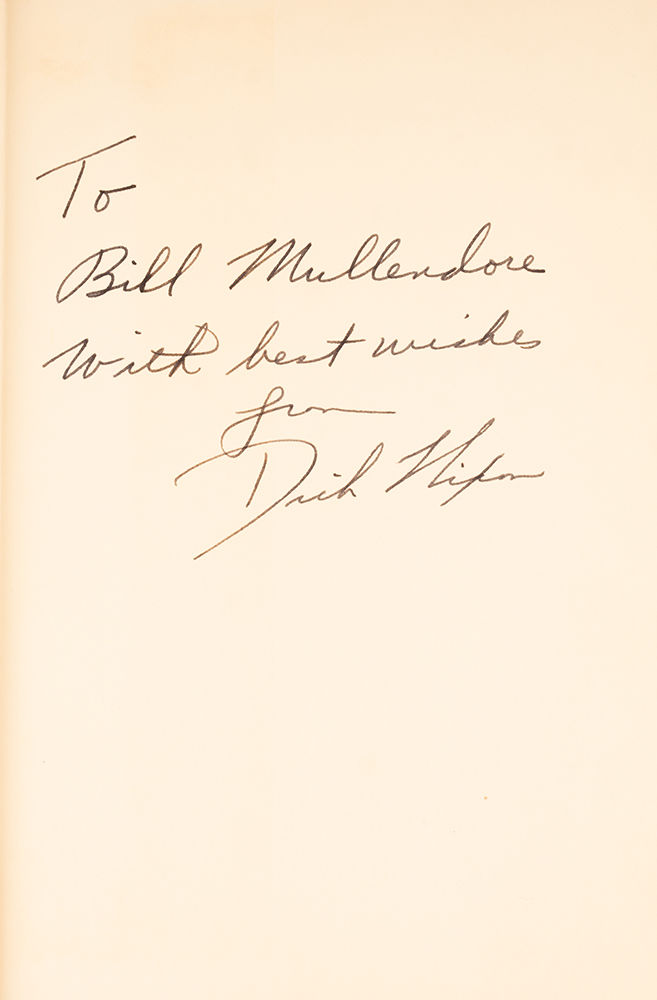 To
Bill Mullendore
With best wishes
from
Dick Nixon